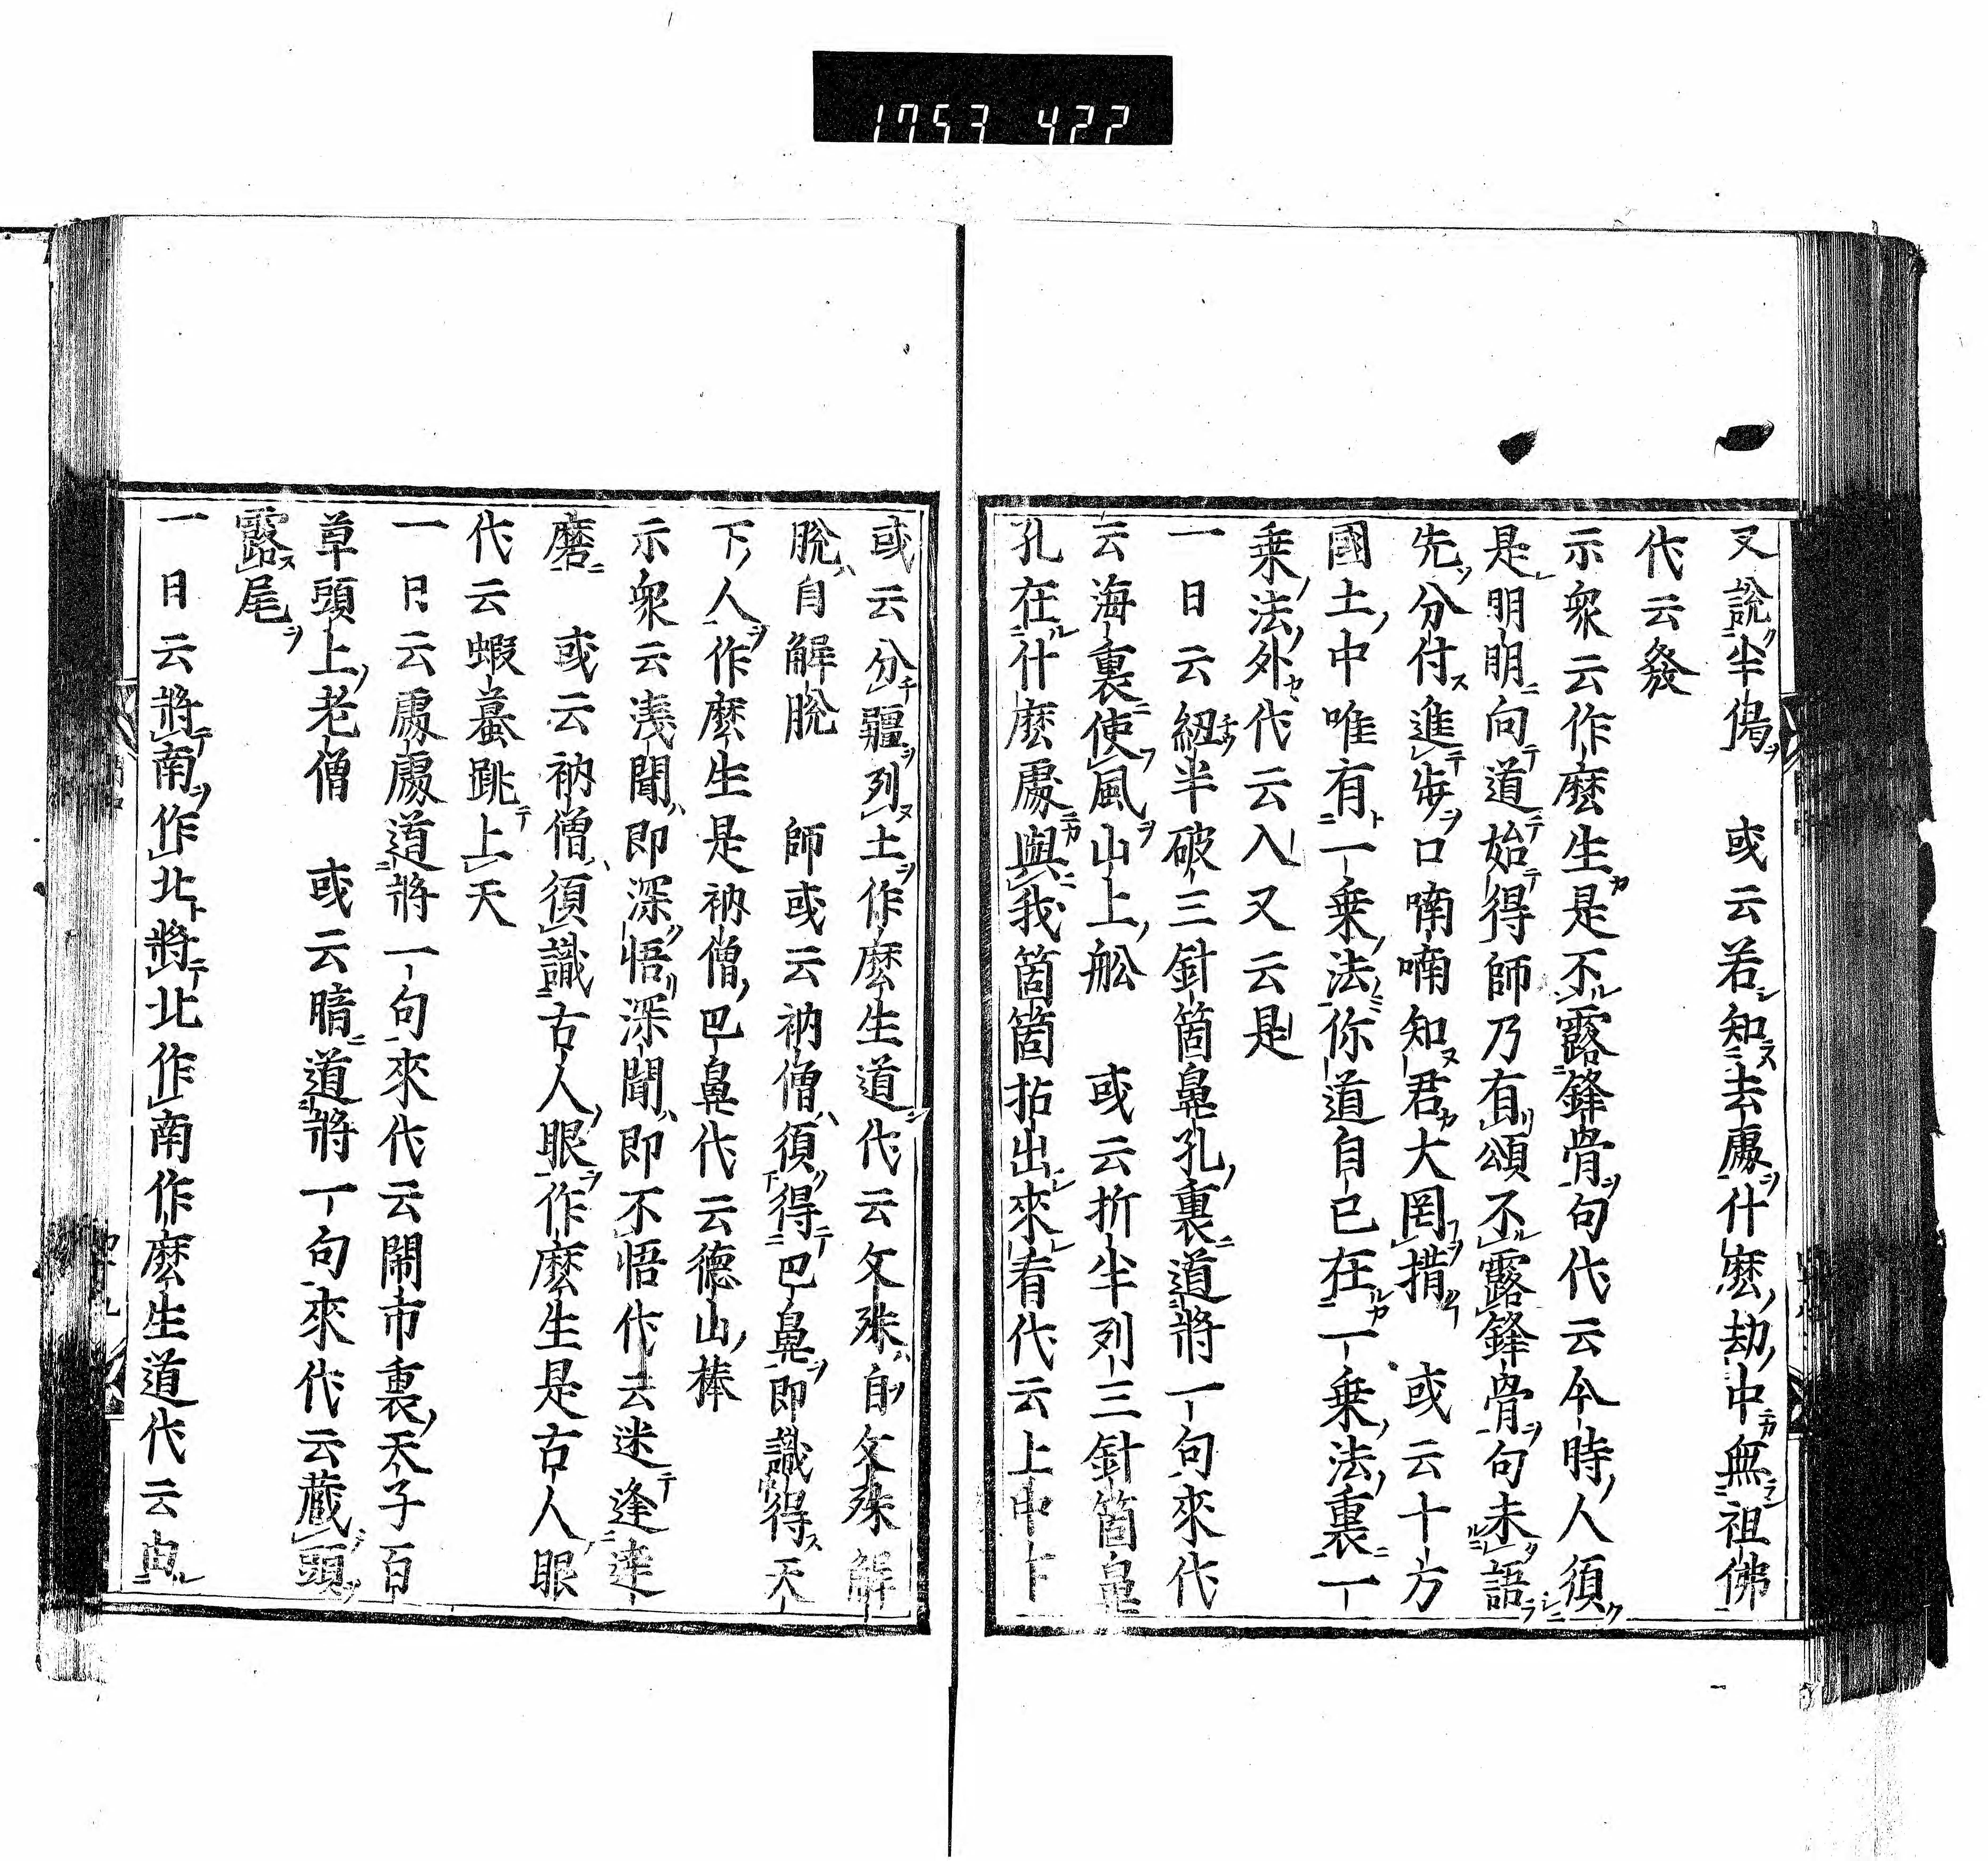 1753 422
又説半偈　或云若知去處什麽劫中無祖佛
代云發
示衆云作麽生是不露鋒骨句代云今時人須
是明明向道始得師乃有頌不露鋒骨句未語
先分付進步口喃喃知君大罔措　或云十方
國土中唯有一乗法你道自己在一乗法裏一
乗法外代云入又云是
一日云紐半破三針箇鼻孔裏道將一句來代
云海裏使風山上舩　或云折半列三針箇鼻
孔在什麽處與我箇箇拈出來看代云上中下
或云分疆列土作麽生道代云文殊自文殊解
脱自解脱　師或云衲僧須得巴鼻即識得天
下人作麽生是衲僧巴鼻代云德山棒
示衆云淺聞即深悟深聞即不悟代云迷逢達
磨　或云衲僧須識古人眼作麽生是古人眼
代云蝦蟇跳上天
一日云處處道將一句來代云閙市裏天子百
草頭上老僧　或云暗道將一句來代云藏頭
露尾
一日云將南作北將北作南作麽生道代云